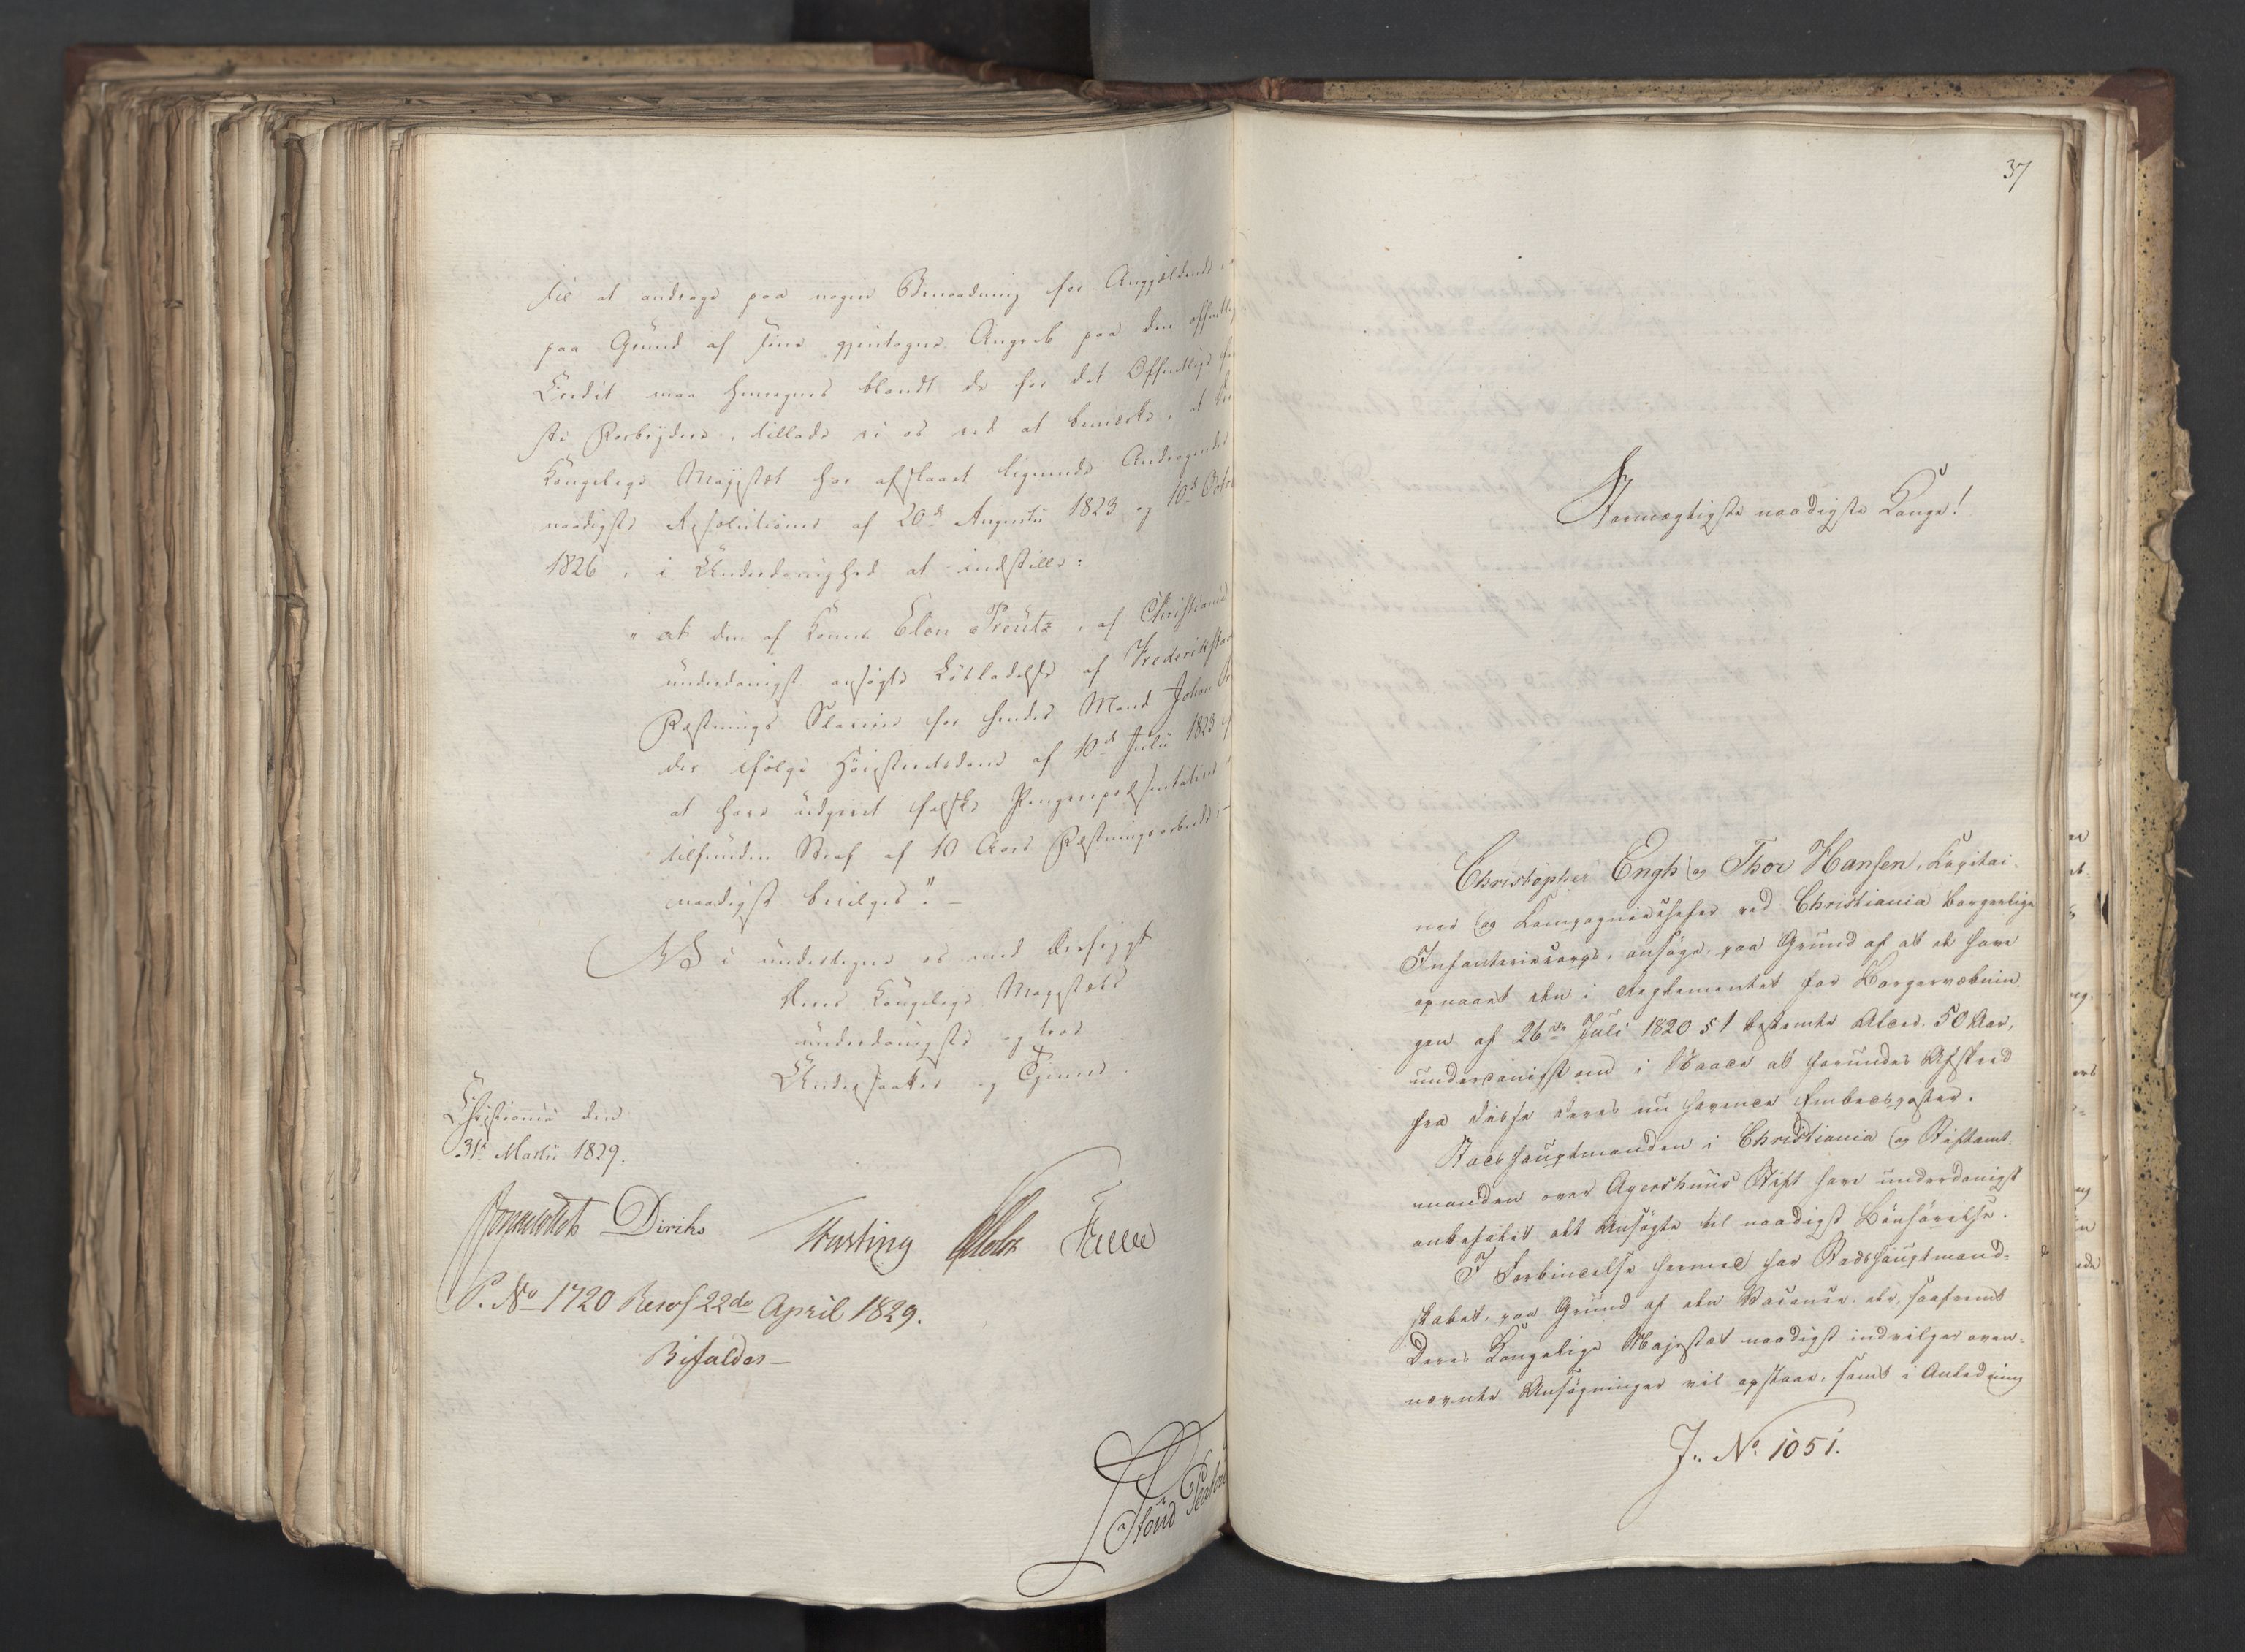 til at andrage paa nogen Benaadning for Angjeldende,
paa Grund af sine gjentagne Angreb paa den offentlig
Credit maa henregnes blandt de for det Offentlige far
ste Forbrydere, tillade vi os ved at bemærke, at De
Kongelige Majestet har afslaaet lignende Andragender
naadigste Resolutioner af 20de Augusti 1823 og 10de Octo
1826, i Underdanighed at indstille:
"at den af Konen Elen Preütz, af Christiania
underdanigst ansøgte Løsladelse af Frederikstad
Fæstnings Slaverie for hendes Mand Johan Pr
der ifølge Høiesteretsdom af 10de Julii 1823 f
at have udgivet falske Pengerepræsentativer
tilfunden Straf af 10 Aars Fæstningsarbeide,
naadigst bevilges". –
Vi undertegne os med dybeste
Deres Kongelige Majestæts
underdanigste og troe
Undersaatter og Tjenere.
Christiania den
31te Martii 1829.
Diriks
P. No 1720 Resol 22de April 1829.
Bifaldes –
37
Stormægtigste naadigste Konge!
Christopher Engh og Thor Hansen, Capitai-
ner og Compagniechefer ved Christiania borgerlige
Infanteriecorps, ansøge, paa Grund af at de have
opnaaet den i Reglementet for Borgervæbnin
gen af 26de Juli 1820 § 1 bestemte Alder. 50 Aar,
underdanigst om i Naade at forundes Afsked
fra disse deres nu havende Embedsposter.
Stadshauptmanden i Christiania og Stiftamt
manden over Agershuus Stift have underdanigst
anbefalet det Ansøgte til naadigst Bønhørelse.
I Forbindelse hermed har Stadshauptmand-
skabet, paa Grund af den Vacance, der, saafremt
Deres Kongelige Majestæt naadigst indvilger oven-
nævnte Ansøgninger vil opstaae, samt i Anledning
J. No 1051.